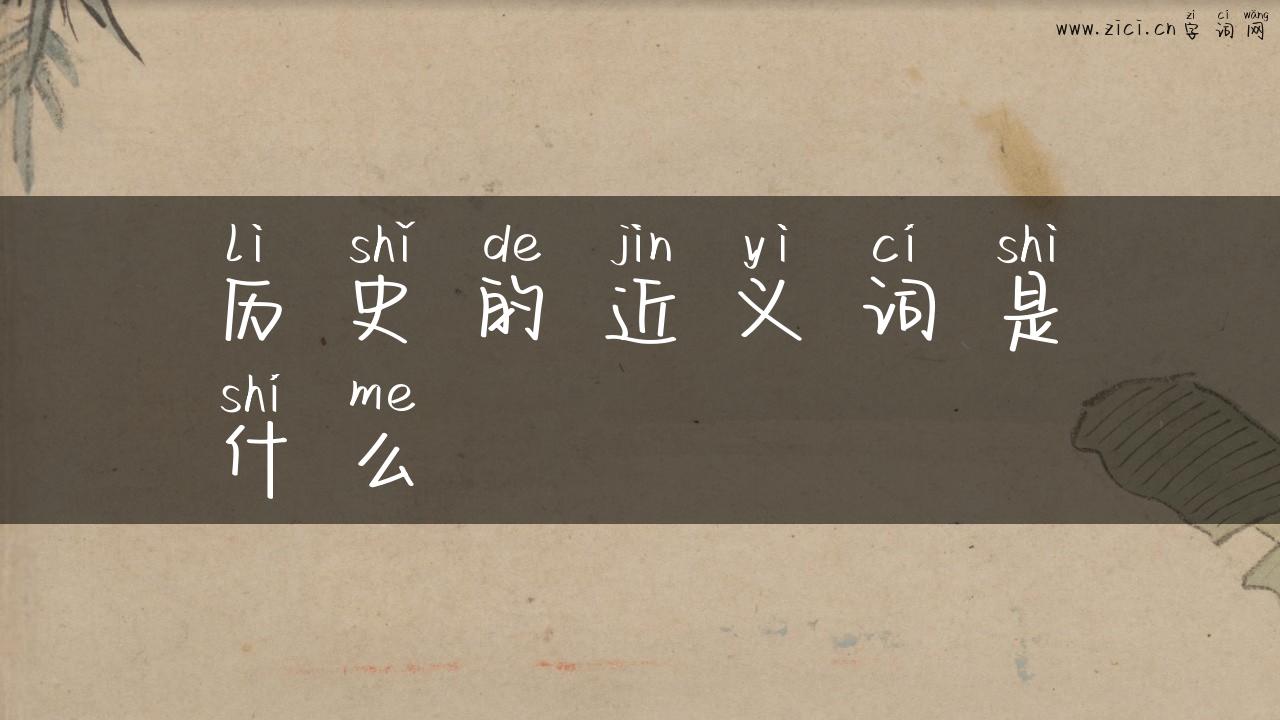 zì cí wǎng
www.zici.cn 字词网
lì shǐ de jìn yì cí shì
历史的近义词是
shí me
什么